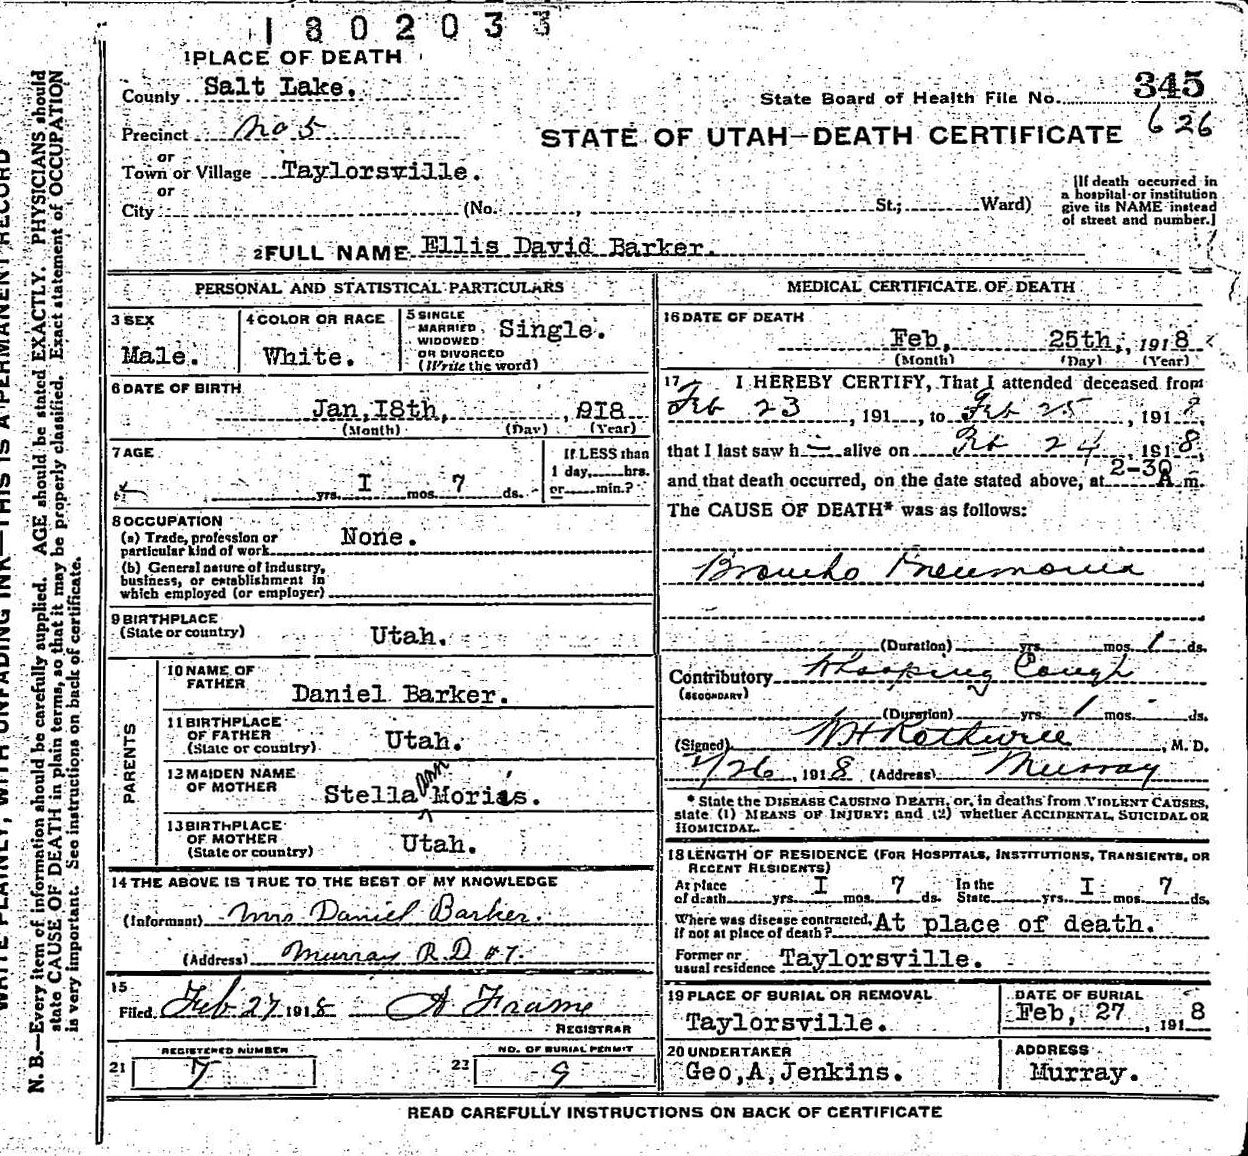 1802033
1 PLACE OF DEATH
County Salt Lake.
State Board of Health File No. 345
Precinct No 5
STATE OF UTAH—DEATH CERTIFICATE 626
or
Town or Village Taylorsville.
or
City (No. , St.; Ward)
[If death occurred in
a hospital or institution
give its NAME instead
of street and number.]
2 FULL NAME Ellis David Barker.
PERSONAL AND STATISTICAL PARTICULARS
3 SEX
Male.
4 COLOR OR RACE
White.
5 SINGLE
MARRIED
WIDOWED
OR DIVORCED
(Write the word)
Single.
6 DATE OF BIRTH
Jan, I8th, , 9I8
(Month) (Day) (Year)
7 AGE
yrs. I mos. 7 ds.
If LESS than
1 day, hrs.
or min.?
8 OCCUPATION
(a) Trade, profession or
particular kind of work None.
(b) General nature of Industry,
business, or establishment in
which employed (or employer)
9 BIRTHPLACE
(State or country) Utah.
PARENTS
10 NAME OF
FATHER
Daniel Barker.
11 BIRTHPLACE
OF FATHER
(State or country) Utah.
12 MAIDEN NAME
OF MOTHER
Stella Ann Morias.
13 BIRTHPLACE
OF MOTHER
(State or country) Utah.
14 THE ABOVE IS TRUE TO THE BEST OF MY KNOWLEDGE
(Informant) Mrs Daniel Barker.
(Address) Murray R.D #7.
15
Filed Feb 27 1918 A Frame
REGISTRAR
REGISTERED NUMBER
21 7
NO. OF BURIAL PERMIT
22 9
MEDICAL CERTIFICATE OF DEATH
16 DATE OF DEATH
Feb, 25th, , 1918
(Month) (Day) (Year)
17 I HEREBY CERTIFY, That I attended deceased from
Feb 23 , 191 , to Feb 25 , 1918
that I last saw h alive on Feb 24 , 1918,
and that death occurred, on the date stated above, at 2-30 A m.
The CAUSE OF DEATH* was as follows:
Broncho Pneumonia
(Duration) yrs. mos. 1 ds.
Contributory Whooping Cough
(SECONDARY)
(Duration) yrs. 1 mos. ds.
(Signed) W H Rothwell , M. D.
2/26, 1918 (Address) Murray
* State the DISEASE CAUSING DEATH, or, in deaths from VIOLENT CAUSES,
state (1) MEANS OF INJURY; and (2) whether ACCIDENTAL, SUICIDAL OR
HOMICIDAL.
18 LENGTH OF RESIDENCE (FOR HOSPITALS, INSTITUTIONS, TRANSIENTS, OR
RECENT RESIDENTS)
At place
of death yrs. I mos. 7 ds. In the
State yrs. I mos. 7 ds.
Where was disease contracted,
If not at place of death? At place of death.
Former or
usual residence Taylorsville.
19 PLACE OF BURIAL OR REMOVAL
Taylorsville.
DATE OF BURIAL
Feb, 27 , 1918
20 UNDERTAKER
Geo,A,Jenkins.
ADDRESS
Murray.
READ CAREFULLY INSTRUCTIONS ON BACK OF CERTIFICATE
WRITE PLAINLY, WITH UNFADING INK—THIS IS A PERMANENT RECORD
N. B.—Every item of information should be carefully supplied. AGE should be stated EXACTLY. PHYSICIANS should
state CAUSE OF DEATH in plain terms, so that it may be properly classified. Exact statement of OCCUPATION
is very important. See instructions on back of certificate.